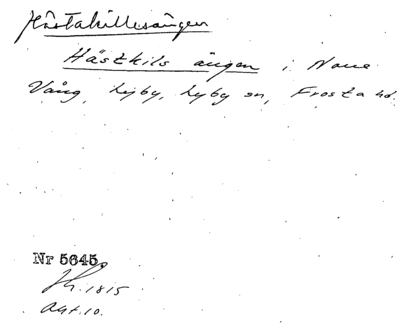 Hästakillesängen
Hästkils ängen i Norre
Vång, Lyby, Lyby sn, Frosta hd.
Nr 5645.
Sk. 1815
Akt. 10.